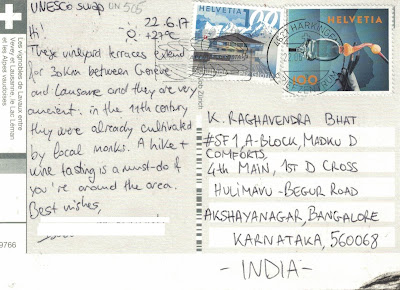 UNESCO swap UN 505
22.6.17
Hi! +27°C
These vineyard terraces extend
for 30km between Geneve
and Lausanne and they are very
ancient: in the 11th century
they were already cultivated
by local monks. A hike +
wine tasting is a must-do if
you're around the area.
Best wishes,
Les vignobles de Lavaux entre
Vevey et Lausanne, le Lac Léman
et les Alpes vaudoises
9766
HELVETIA
100
HELVETIA
100
4621 HÄRKINGEN
K. RAGHAVENDRA BHAT
#SF1, A-BLOCK, MADHU D
COMFORTS,
4TH MAIN, 1ST D CROSS
HULIMAVU-BEGUR ROAD
AKSHAYANAGAR, BANGALORE
KARNATAKA, 560068
-INDIA-